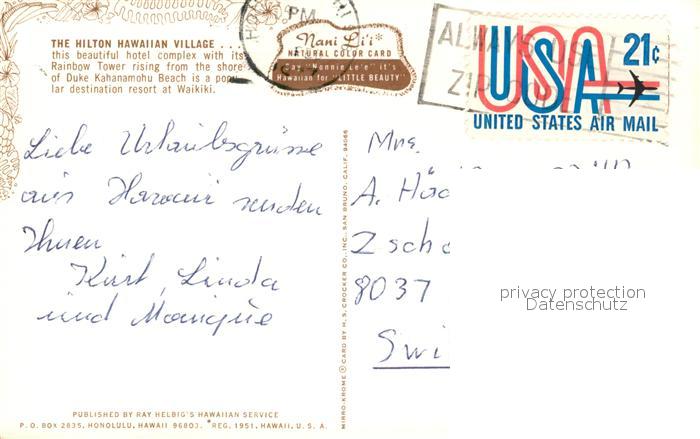 THE HILTON HAWAIIAN VILLAGE . . .
this beautiful hotel complex with its
Rainbow Tower rising from the shore
of Duke Kahanamohu Beach is a popu-
lar destination resort at Waikiki.
PM
Nani Li'i*
NATURAL COLOR CARD
Say "Nannie Le'e" it's
Hawaiian for "LITTLE BEAUTY"
ALWAYS USE
ZIP CODE
USA 21c
UNITED STATES AIR MAIL
Liebe Urlaubsgrüsse
aus Hawaii senden
Ihnen
Kurt, Linda
und Monique
MIRRO-KROME ® CARD BY H. S. CROCKER CO., INC., SAN BRUNO, CALIF. 94066
A. Hä
Zscho
8037
Swi
privacy protection
Datenschutz
PUBLISHED BY RAY HELBIG'S HAWAIIAN SERVICE
P. O. BOX 2835, HONOLULU, HAWAII 96803. *REG. 1951, HAWAII, U. S. A.